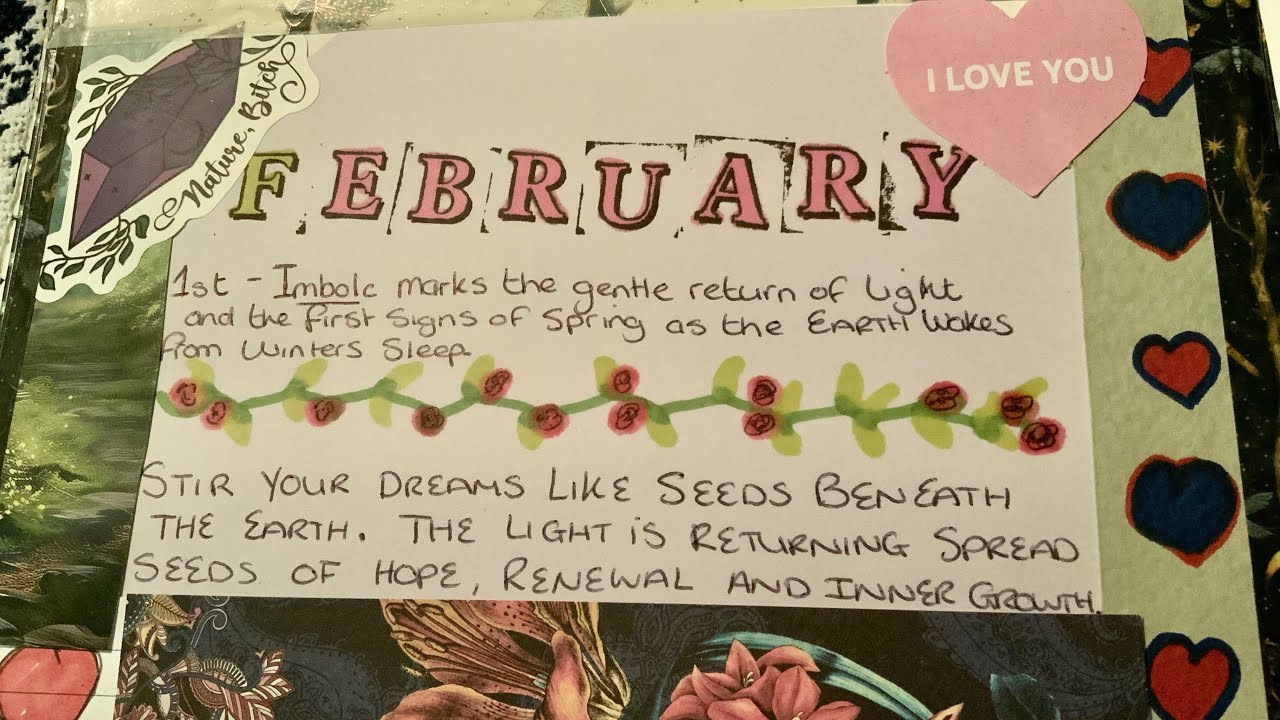 Nature, Bitch
I LOVE YOU
FEBRUARY
1st - Imbolc marks the gentle return of Light
and the first signs of Spring as the EARTH Wakes
from Winters Sleep
STIR YOUR DREAMS LIKE SEEDS BENEATH
THE EARTH. THE LIGHT iS RETURNING SPREAD
SEEDS OF HOPE, RENEWAL AND INNER GROWTH.